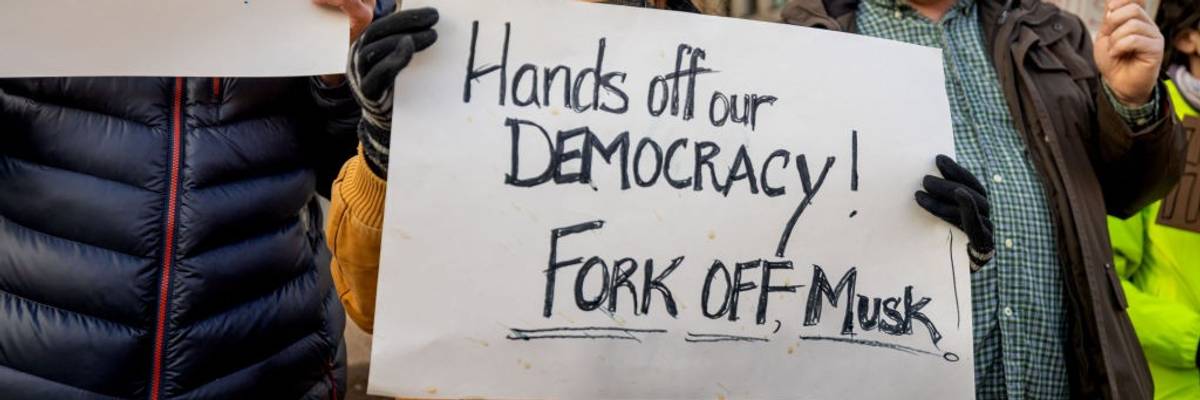 Hands off our
DEMOCRACy!
FORK OFF, MUSK!